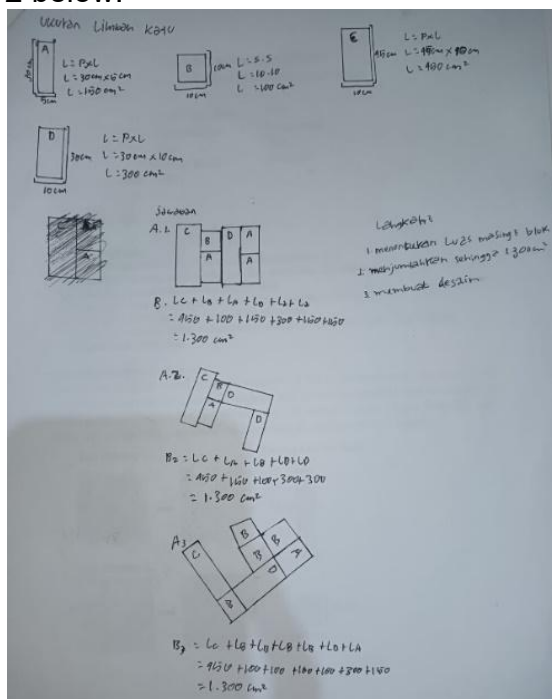 2 below.
Ukuran Limbah Kayu
A
30cm
5cm
L = PxL
L = 30cm x 5cm
L = 150 cm²
B
10cm
10cm
L = S.S
L = 10.10
L = 100 cm²
C
45cm
10cm
L = PxL
L = 45cm x 10cm
L = 450 cm²
D
30cm
10cm
L = PxL
L = 30cm x 10cm
L = 300 cm²
Jawaban
A.1.
C
B
D
A
A
A
B. LC + LB + LA + LD + LA + LA
= 450 + 100 + 150 + 300 + 150 + 150
= 1.300 cm²
Langkah²
1. menentukan Luas masing² blok
2. menjumlahkan sehingga 1.300 cm²
3. membuat desain.
A.2.
C
B
D
A
D
B2 = LC + LA + LB + LD + LD
= 450 + 150 + 100 + 300 + 300
= 1.300 cm²
A3
C
B
B
B
A
D
B
B3 = LC + LB + LB + LB + LB + LD + LA
= 450 + 100 + 100 + 100 + 100 + 300 + 150
= 1.300 cm²